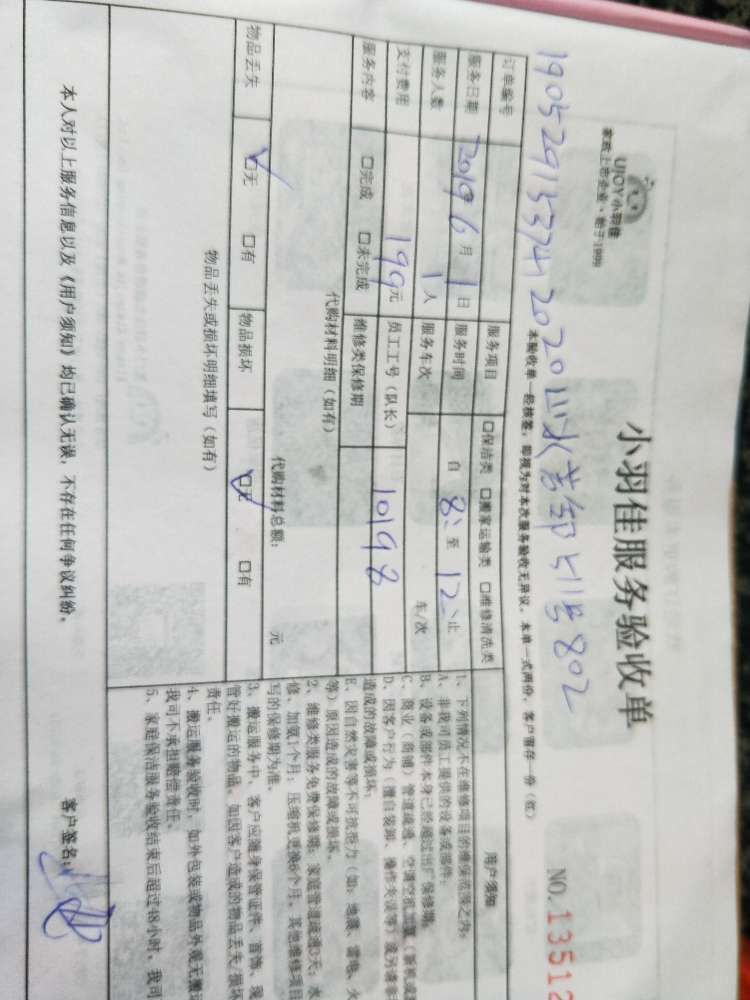 UJOY小羽佳
家政上市企业·始于1999
小羽佳服务验收单
NO.13512
本验收单一经核签，即视为对本次服务验收无异议，本单一式两份，客户留存一份（红）
订单编号
服务项目 □保洁类 □搬家运输类 □维修清洗类
服务日期 2019年6月1日 服务时间 自8:至12:止
服务人数 1人 服务车次 车/次
支付费用 199元 员工工号（队长） 10198
服务内容 □完成 □未完成 维修类保修期
代购材料明细（如有）
代购材料总额： 元
物品丢失 ☑无 □有 物品损坏 ☑无 □有
物品丢失或损坏明细填写（如有）
用户须知
1、下列情况不在维修项目的维保范围之内：
A、非我司员工提供的设备或部件；
B、设备或部件本身已经超过出厂保修期；
C、商业（商铺）管道疏通、空调空机加氨（新机或
D、因客户行为（擅自装卸、操作失误等）或列者非
造成的故障或损坏；
E、因自然灾害等不可抗拒力（如：地震、雷电、火
等）原因造成的故障或损坏。
2、维修类服务免费保修期：家庭管道疏通3天；水
修、加氨1个月；压缩机更换6个月，其他维修项目
写的保修期为准。
3、搬运服务中，客户应随身保管证件、首饰、现
管好搬运的物品，如因客户造成的物品丢失、损坏
责任。
4、搬运服务验收时，如外包装或物品外观无搬运
我司不承担赔偿责任。
5、家庭保洁服务验收结束后超过48小时，我司
本人对以上服务信息以及《用户须知》均已确认无误，不存在任何争议纠纷。
客户签名：